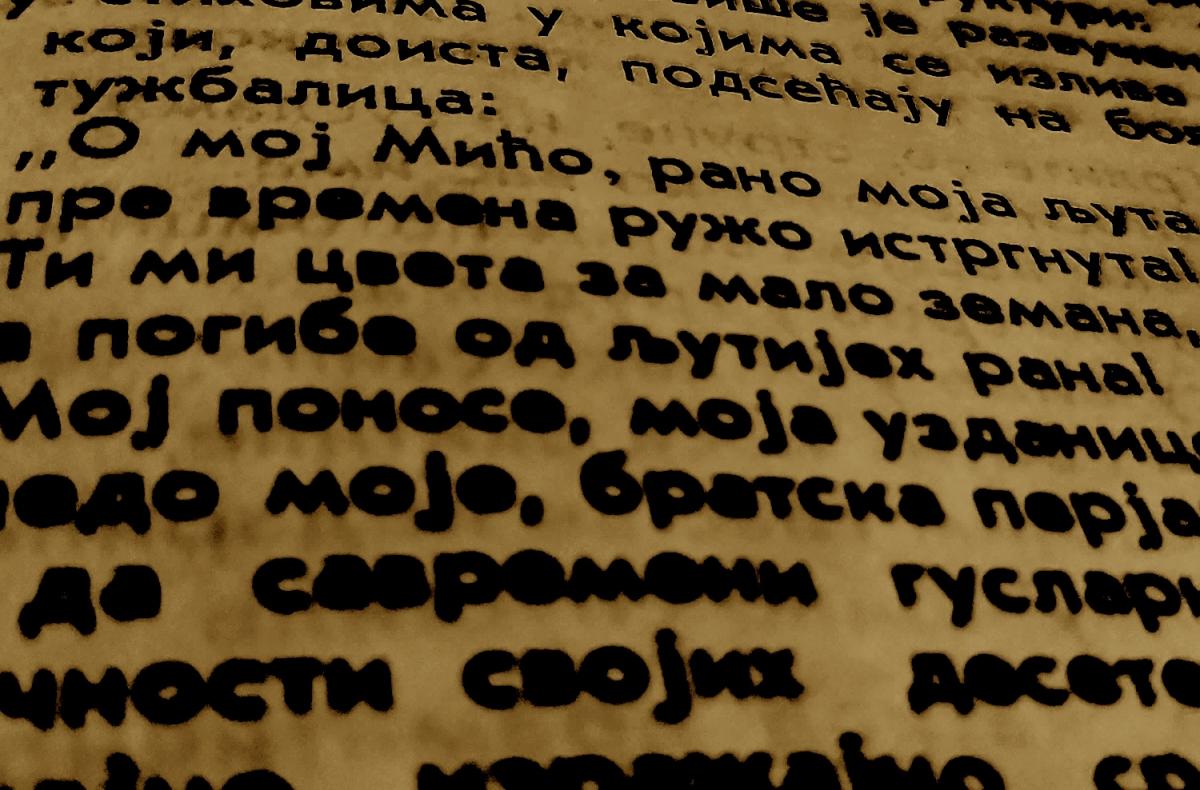 у стиховима у више је
који, доиста, којима се излива
тужбалица: подсећају на
„О мој Мићо, рано моја љута
пре времена ружо истргнута!
Ти ми цвета за мало земана,
а погибе од љутијех рана!
Мој поносе, моја узданице
чедо моје, братска перја
да савремени гуслари
својих десете